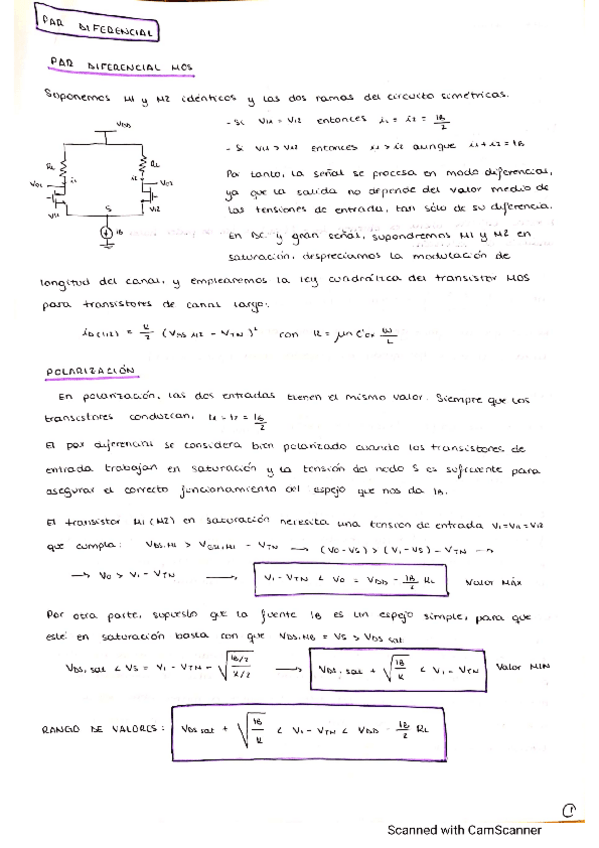 PAR DIFERENCIAL
PAR DIFERENCIAL MOS
Suponemos M1 y M2 idénticos y las dos ramas del circuito simétricas.
VDD
RL RL
Vo1 i1 i2 Vo2
Vi1 S Vi2
IB
- Si Vi1 = Vi2 entonces i1 = i2 = IB/2
- Si Vi1 > Vi2 entonces i1 > i2 aunque i1 + i2 = IB
Por tanto, la señal se procesa en modo diferencias,
ya que la salida no depende del valor medio de
las tensiones de entrada, tan sólo de su diferencia.
En DC y gran señal, supondremos M1 y M2 en
saturación, despreciamos la modulación de
longitud del canal, y emplearemos la ley cuadrática del transistor MOS
para transistores de canal largo:
iD(1,2) = K/2 (VGS M12 - VTN)² con K = μn C'ox W/L
POLARIZACIÓN
En polarización, las dos entradas tienen el mismo valor. Siempre que los
transistores conduzcan, i1 = i2 = IB/2
El par diferencial se considera bien polarizado cuando los transistores de
entrada trabajan en saturación y la tensión del nodo S es suficiente para
asegurar el correcto funcionamiento del espejo que nos da IB.
El transistor M1 (M2) en saturación necesita una tension de entrada Vi=Vi1=Vi2
que cumpla: VDS,M1 > VGS,M1 - VTN → (Vo-VS) > (Vi-VS) - VTN →
→ Vo > Vi - VTN → Vi - VTN < Vo = VDD - IB/2 RL Valor MÁX
Por otra parte, supuesto que la fuente IB es un espejo simple, para que
esté en saturación basta con que VDS,MB = VS > VDS sat
VDS, sat < VS = Vi - VTN - √((IB/2)/(K/2)) → VDS, sat + √(IB/K) < Vi - VTN Valor MIN
RANGO DE VALORES: VDS sat + √(IB/K) < Vi - VTN < VDD - IB/2 RL
1
Scanned with CamScanner